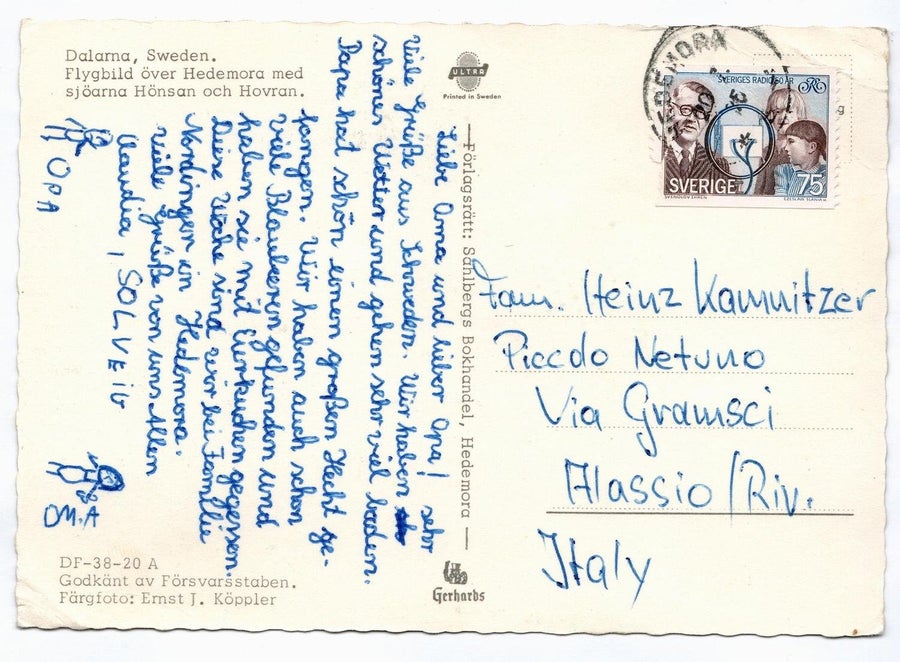 Dalarna, Sweden.
Flygbild över Hedemora med
sjöarna Hönsan och Hovran.
ULTRA
Printed in Sweden
Liebe Oma und lieber Opa!
Viele Grüße aus Schweden. Wir haben sehr
schönes Wetter und gehen sehr viel baden.
Papa hat schön einen großen Hecht ge-
fangen. Wir haben auch schon
viele Blaubeeren gefunden und
haben sie mit Eierkuchen gegessen.
Diese Woche sind wir bei Familie
Nordingen in Hedemora.
Viele Grüße von uns Allen
Claudia, SOLVEIG
OPA
OM.A
DF-38-20 A
Godkänt av Försvarsstaben.
Färgfoto: Ernst J. Köppler
Förlagsrätt: Sahlbergs Bokhandel, Hedemora
Gerhards
HEDEMORA
SVERIGES RADIO 50 ÅR
SVERIGE 75
SVENOLOV EHRÉN
CZESLAW SLANIA
g
Fam. Heinz Kamnitzer
Piccdo Netuno
Via Gramsci
Alassio/Riv.
Italy